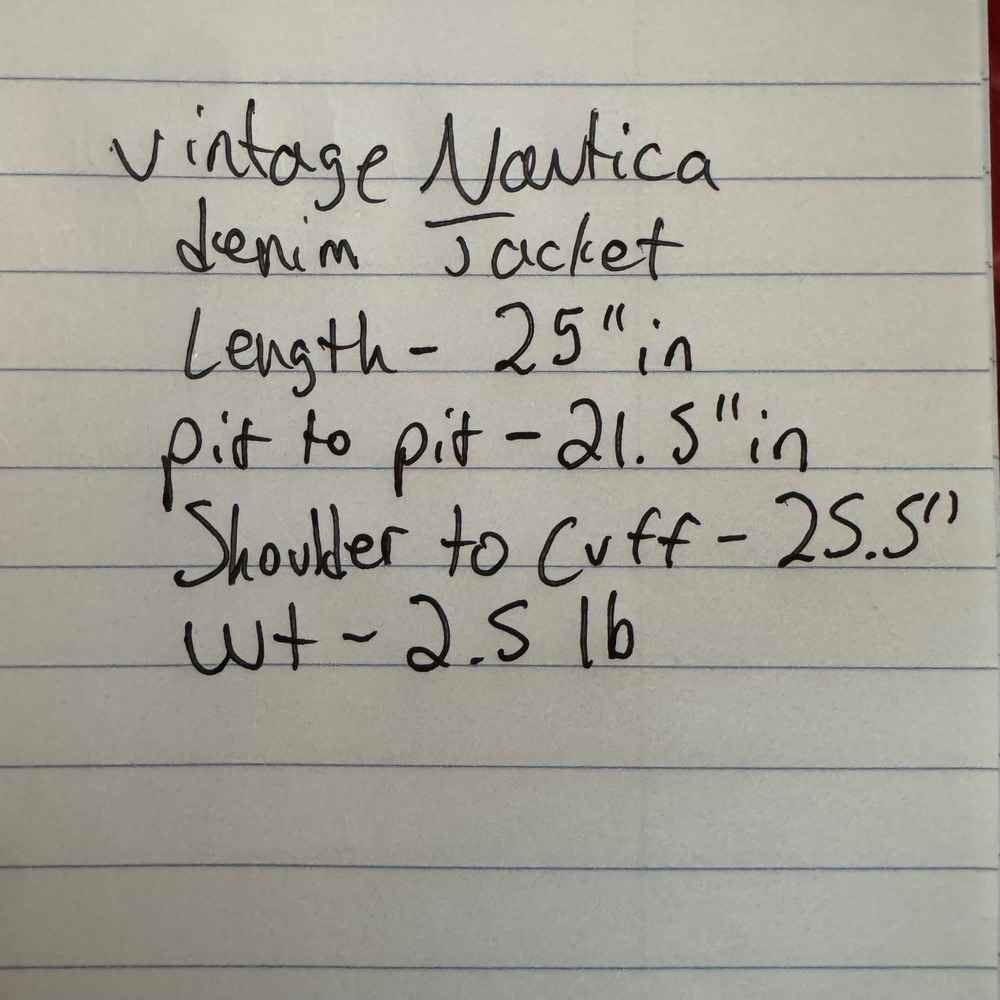 vintage Nautica
denim Jacket
Length - 25" in
pit to pit - 21.5" in
Shoulder to Cuff - 25.5"
Wt - 2.5 lb